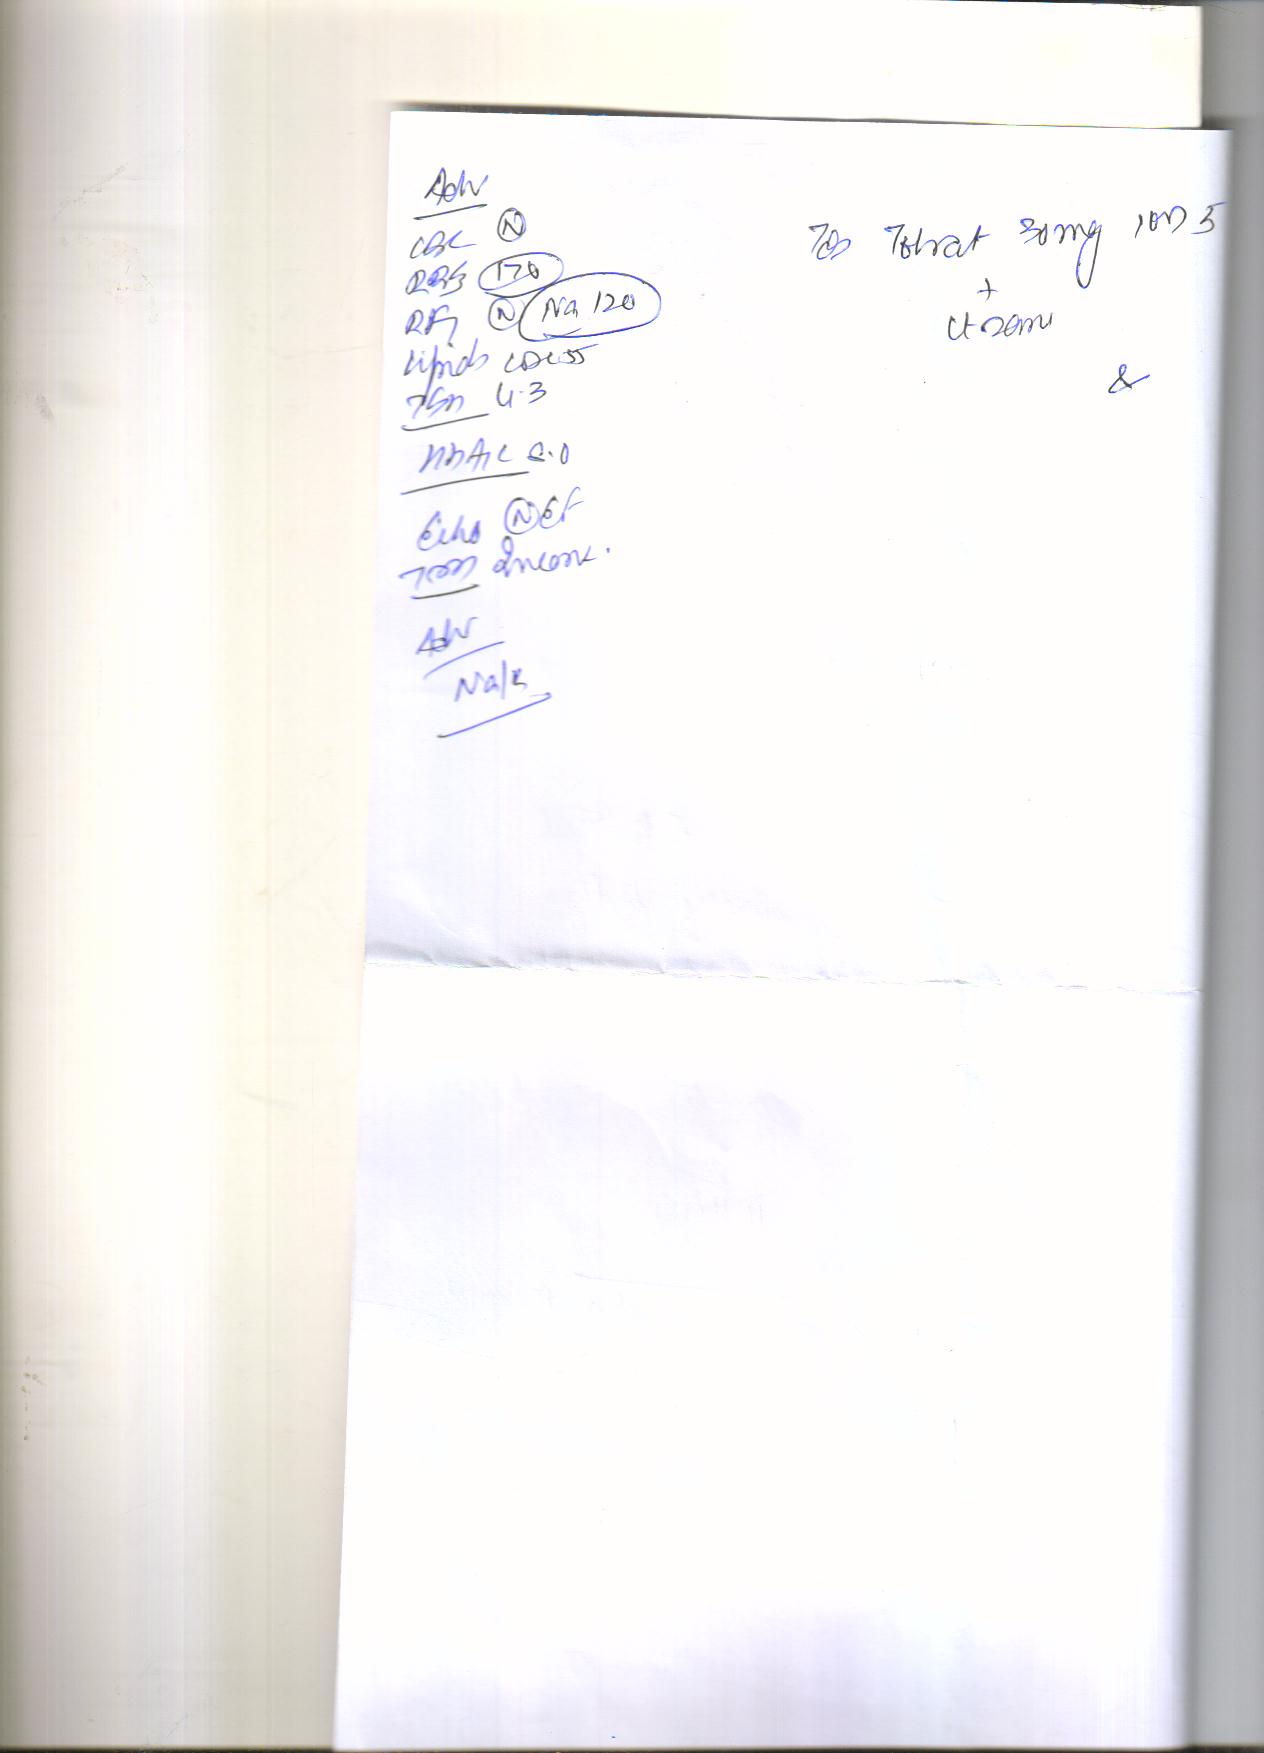 Adv
CBC (N)
RBS 170
RFT (N) Na 120
Lipids LDL 55
TSH 4.3
HbA1C 8.0
Echo (N) EF
TMT Incon.
Adv
Na/K
Tab Tolvat 30mg 10D 5
+
&